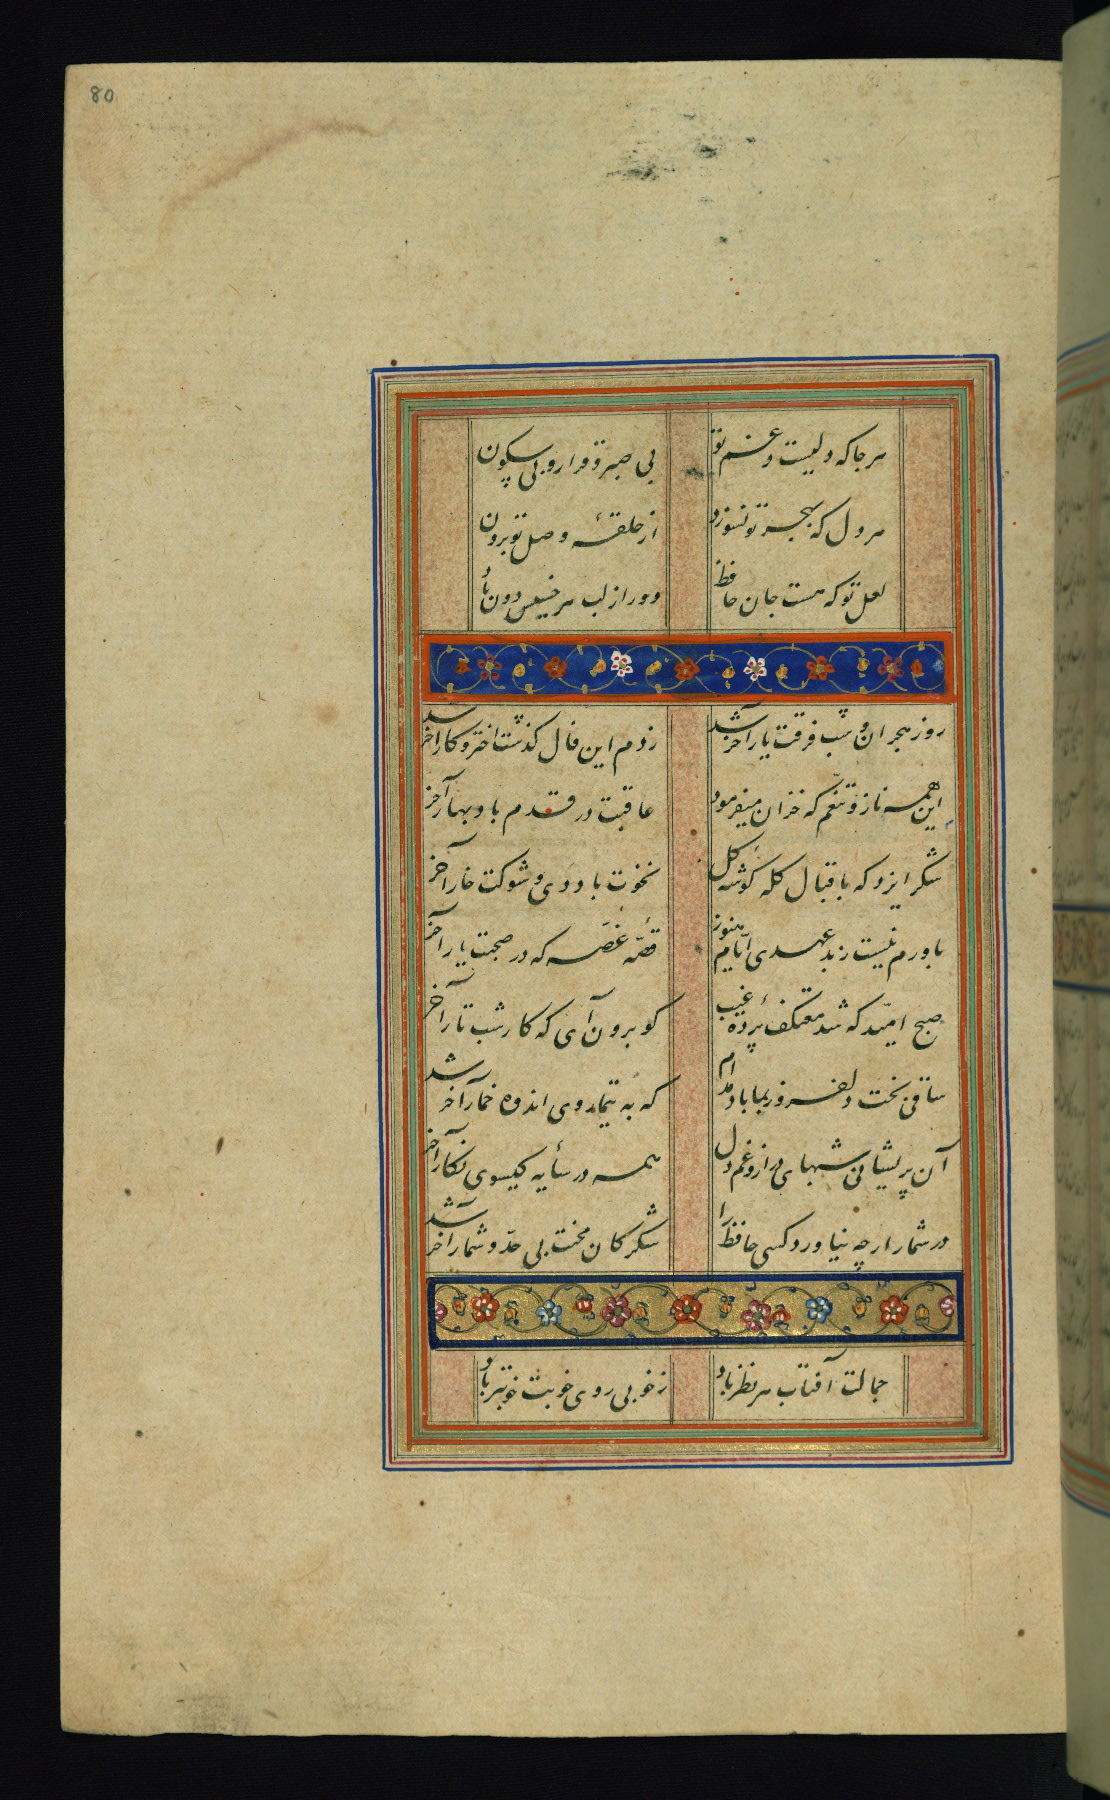 80
هر جا که دلیست در غم تو بی صبر و قرار و بی سکون
هر دل که بهجر تو نسوزد از حلقهٔ وصل تو برون
لعل تو که هست جان حافظ دور از لب هر خسیس دون باد
روز هجران و شب فرقت یار آخر شد زدم این فال گذشت اختر و کار آخر شد
این همه ناز و تنعّم که خزان میفرمود عاقبت در قدم باد بهار آخر
شکر ایزد که باقبال کله گوشهٔ گل نخوت باد دی و شوکت خار آخر
باورم نیست ز بد عهدی ایّام هنوز قصّهٔ غصّه که در صحبت یار آخر
صبح امیّد که شد معتکف پردهٔ غیب کو برون آی که کار شب تار آخر
ساقی بخت دلفروز بما باد مدام که به تیمار وی اندوه خمار آخر شد
آن پریشانی شبهای دراز و غم دل همه در سایه کیسوی نکار آخر
در شمار ار چه نیاورد کسی حافظ را شکر کان محنت بی حدّ و شمار آخر شد
جمالت آفتاب هر نظر باد ز خوبی روی خوبت خوبتر باد